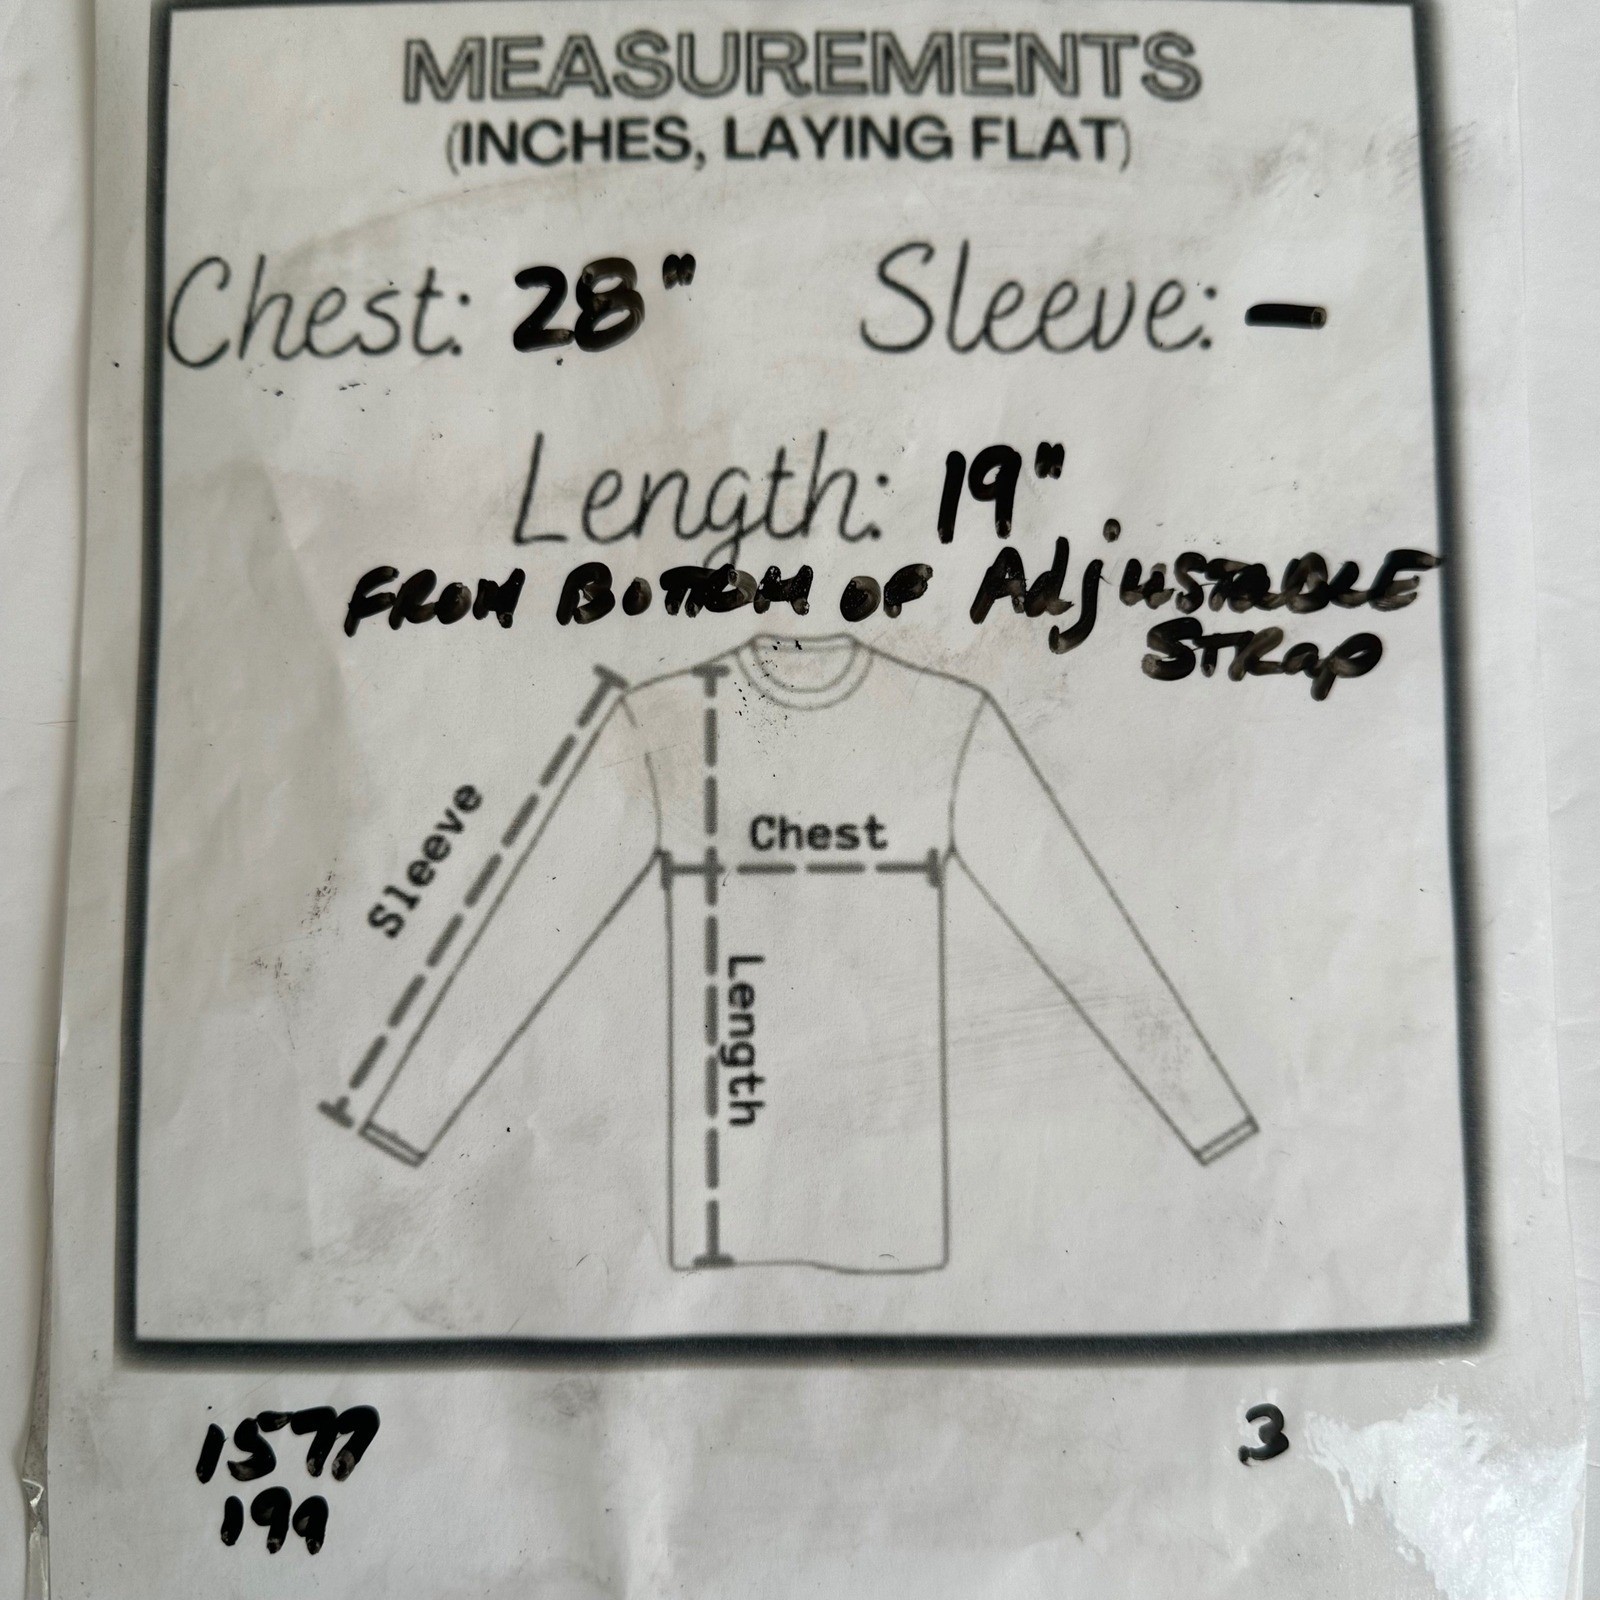 MEASUREMENTS
(INCHES, LAYING FLAT)
Chest: 28" Sleeve: -
Length: 19"
FROM BOTTOM OF AdjUSTABLE
STRap
Sleeve
Chest
Length
1577
199
3